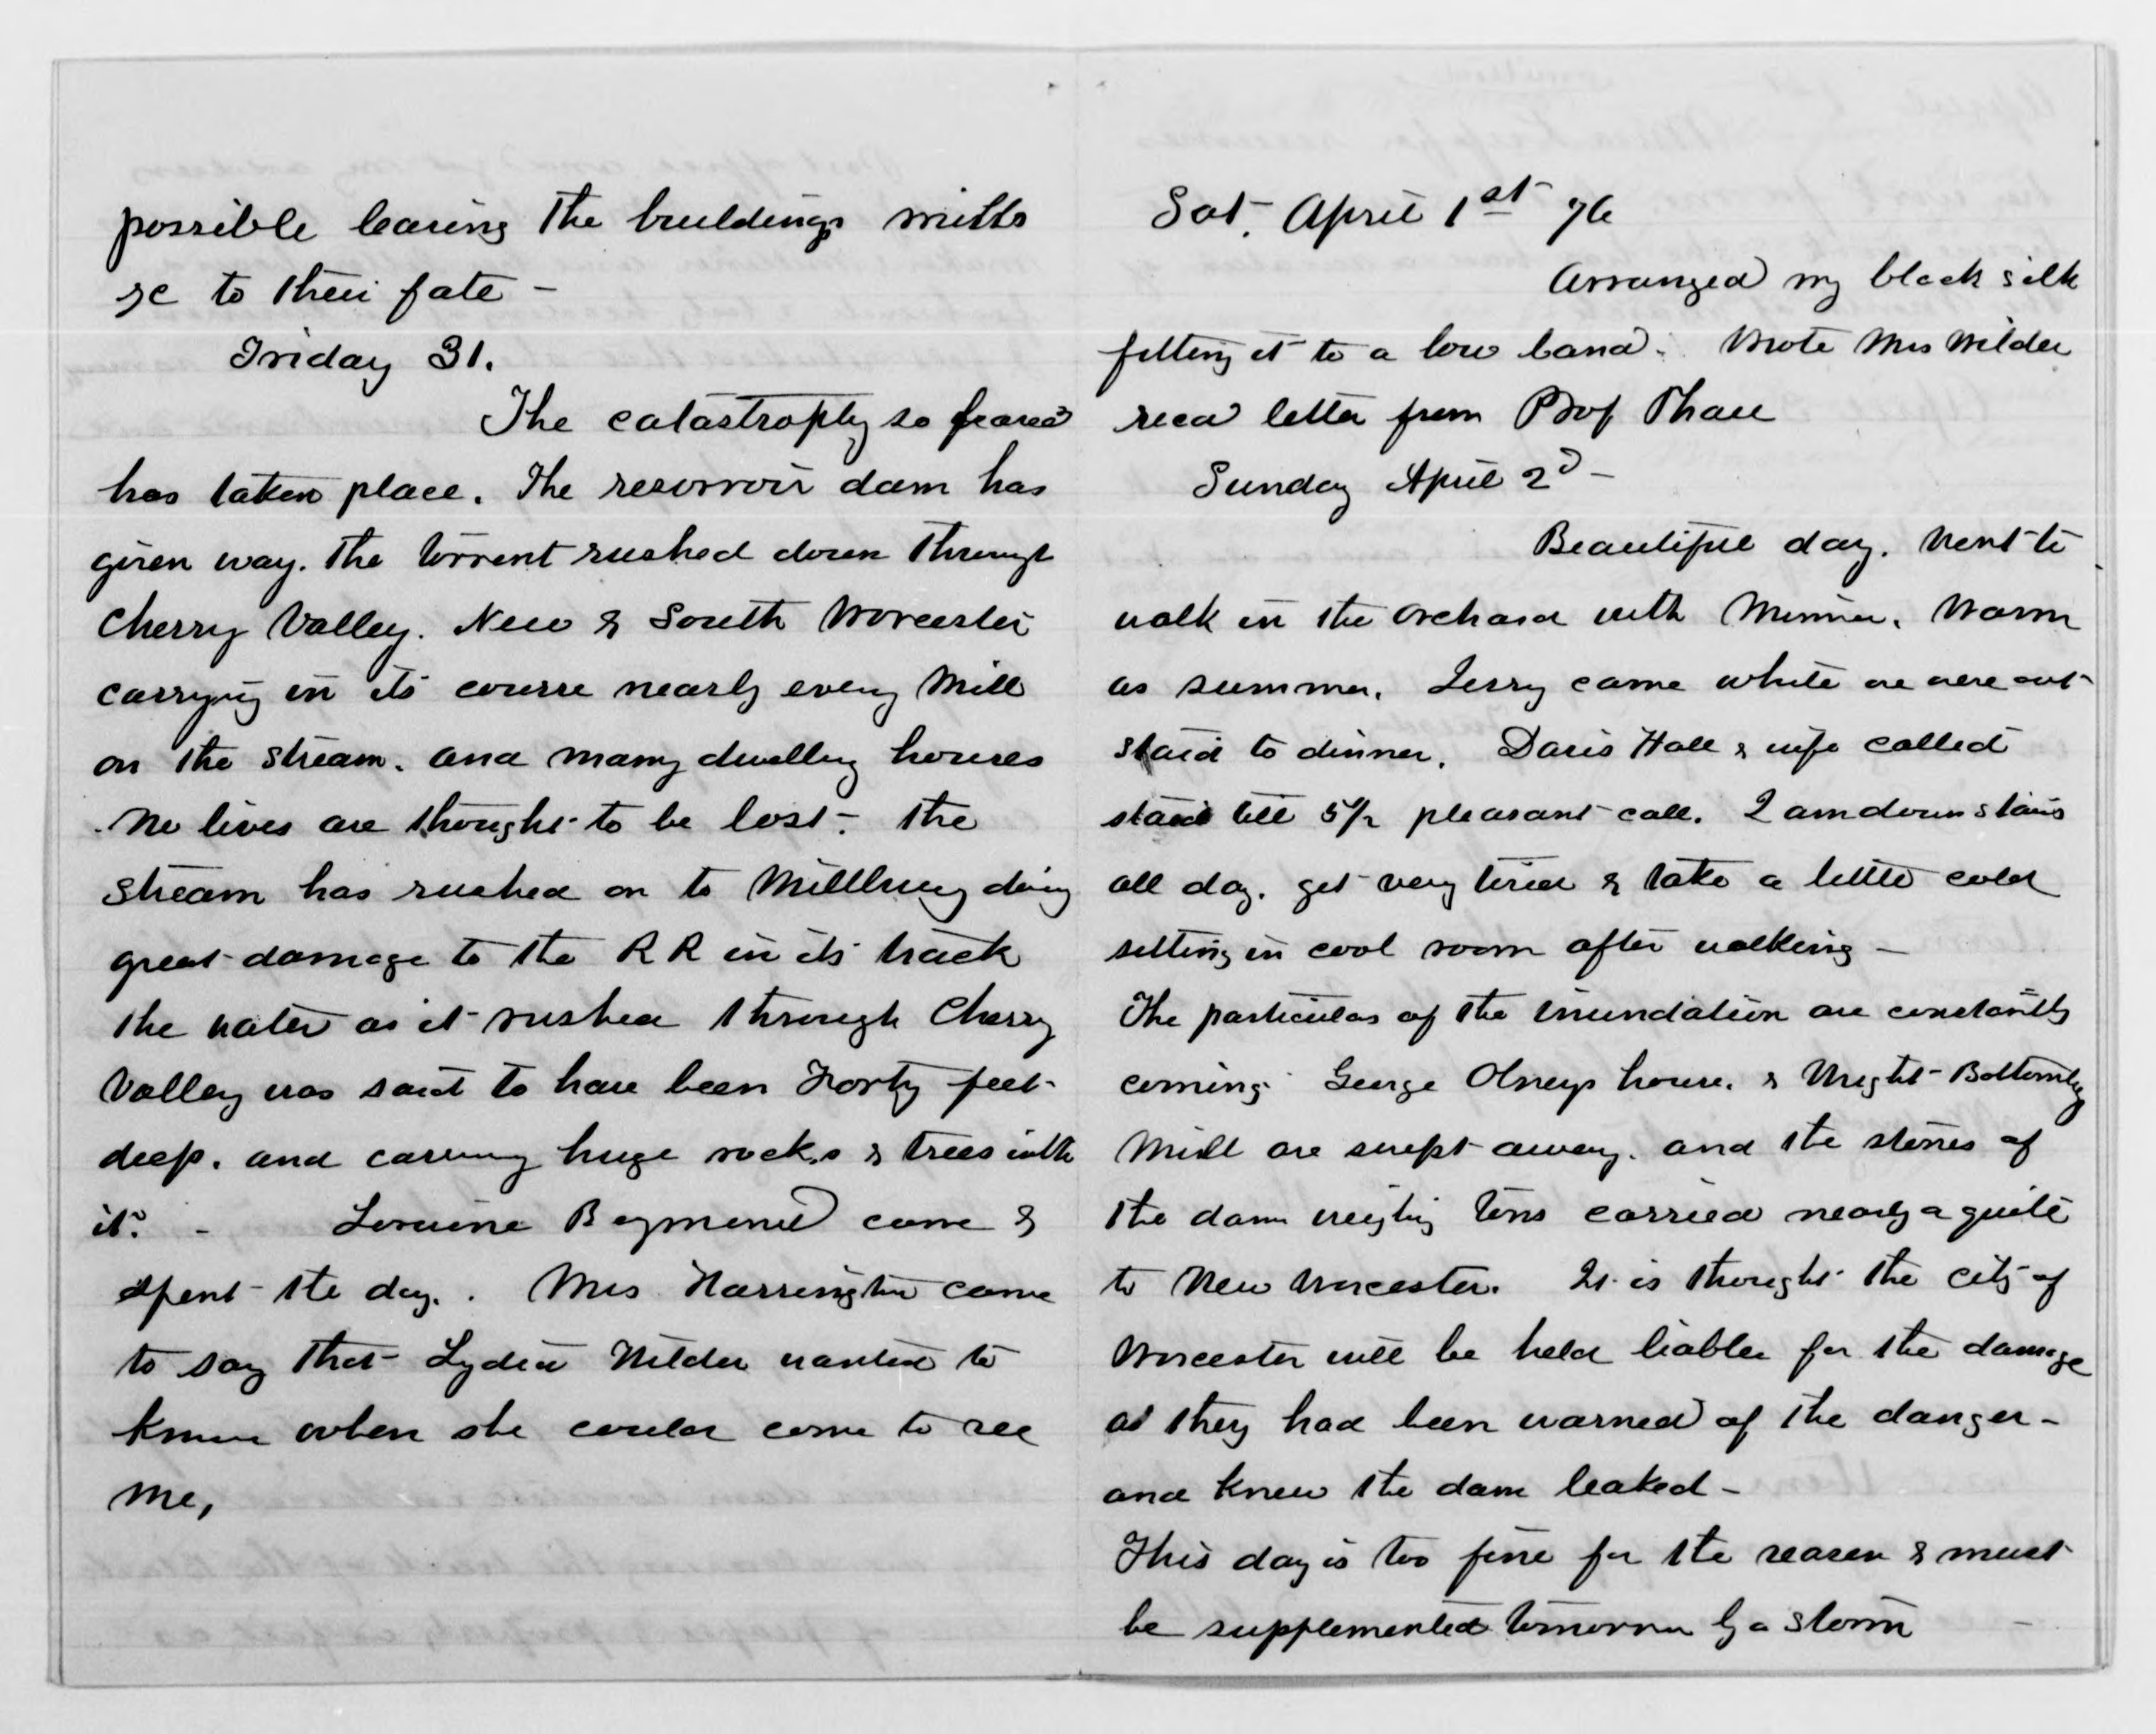 possible leaving the buildings mills
&c to their fate –
Friday 31.
The catastrophy so feared
has taken place. The reservoir dam has
given way. the torrent rushed down through
Cherry Valley. New & South Worcester
carrying in its course nearly every Mill
on the stream. and many dwelling houses
No lives are thought to be lost – the
stream has rushed on to Millbury doing
great damage to the R R in its track
the water as it rushed through Cherry
Valley was said to have been Forty feet
deep. and carrying huge rocks & trees with
it. – Loraine come &
spent the day. Mrs Harrington came
to say that Lydia Wilder wanted to
know when she could come to see
me,
Sat. April 1st 76
Arranged my black silk
fitting it to a low band. Wrote Mrs Wilder
recd letter from Prof
Sunday April 2d –
Beautiful day. Went to
walk in the orchard with Minna. Warm
as summer. Jerry came while we were out
staid to dinner. Davis Hall & wife called
staid till 5½ pleasant call. I am down stairs
all day. get very tired & take a little cold
sitting in cool room after walking –
The particulars of the inundation are constantly
coming. George Olneys house. & Wright Bottomly
Mill are swept away. and the stones of
the dam weighing tons carried nearly a quite
to New Worcester. It is thought the city of
Worcester will be held liable for the damage
as they had been warned of the danger –
and knew the dam leaked –
This day is too fine for the season & must
be supplemented tomorrow by a storm –